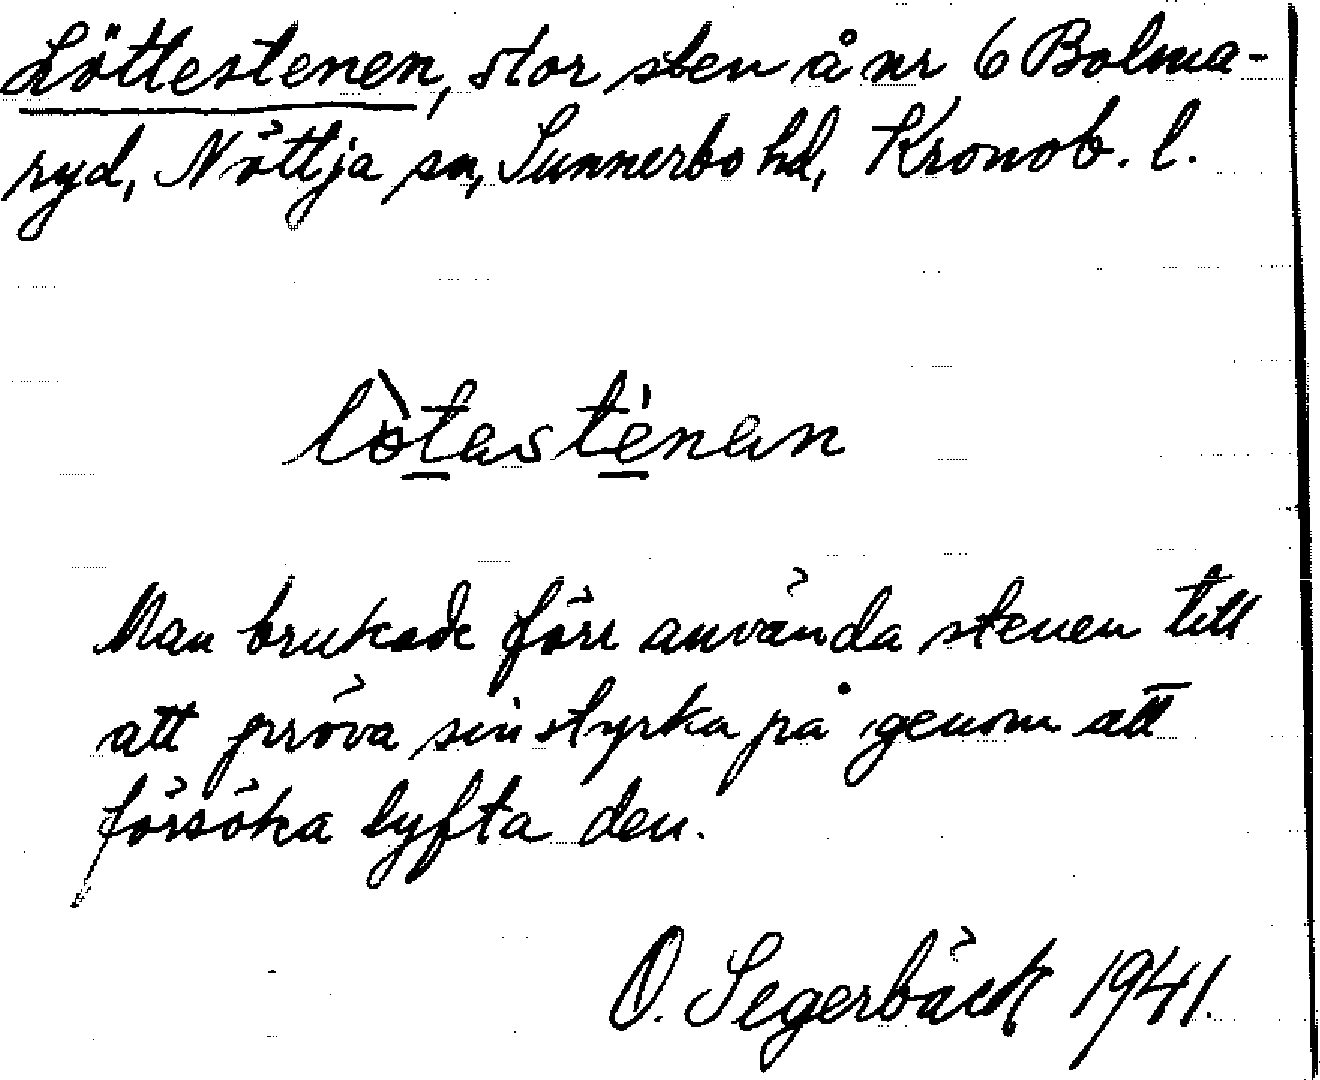 Löttestenen, stor sten å nr 6 Bolma-
ryd, Nöttja sn, Sunnerbo hd, Kronob. l.
lò̈tasténan
Man brukade förr använda stenen till
att pröva sin styrka på genom att
försöka lyfta den.
O. Segerbäck 1941.